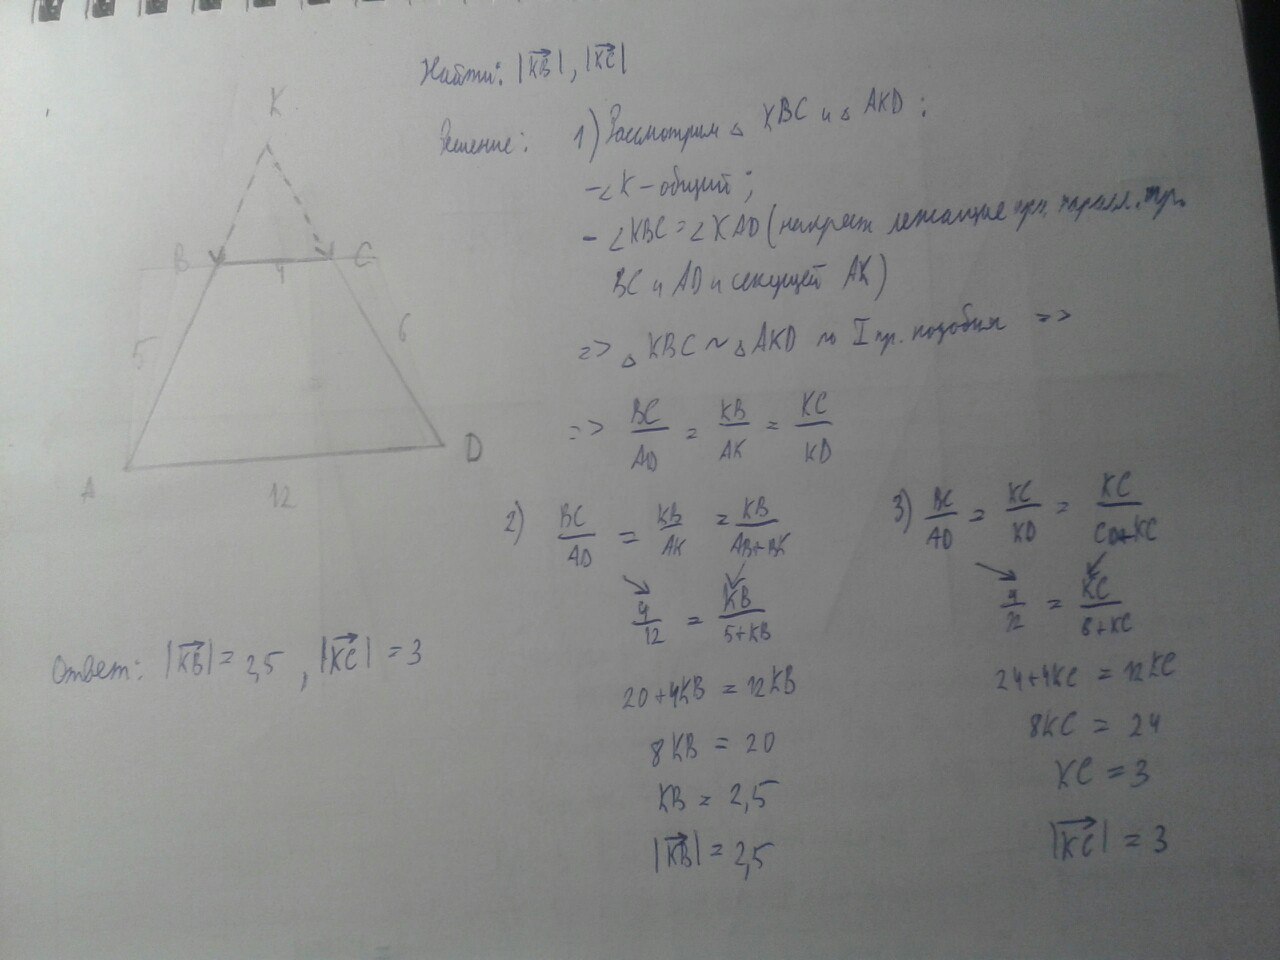 K
B
C
4
5
6
A
D
12
Найти: |KB|, |KC|
Решение: 1) Рассмотрим △ KBC и △ AKD:
-∠K - общий;
- ∠KBC = ∠KAD (накрест лежащие при паралл. пр.
BC и AD и секущей AK)
=> △ KBC ~ △ AKD по I пр. подобия =>
=> BC/AD = KB/AK = KC/KD
2) BC/AD = KB/AK = KB/AB+BK
4/12 = KB/5+KB
20+4KB = 12KB
8KB = 20
KB = 2,5
|KB| = 2,5
3) BC/AD = KC/KD = KC/CD+KC
4/12 = KC/6+KC
24+4KC = 12KC
8KC = 24
KC = 3
|KC| = 3
Ответ: |KB| = 2,5, |KC| = 3